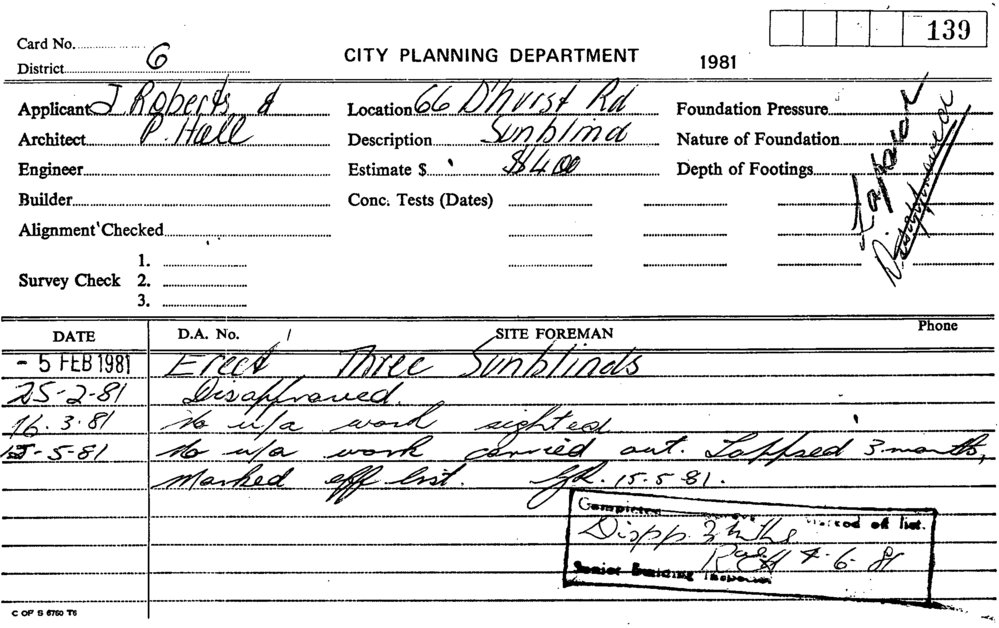 139
Card No.
District 6
CITY PLANNING DEPARTMENT 1981
Applicant J. Roberts &
Architect P. Hall
Engineer
Builder
Alignment Checked
Survey Check 1.
2.
3.
Location 66 D'hurst Rd
Description Sunblind
Estimate $ $400
Conc. Tests (Dates)
Foundation Pressure
Nature of Foundation
Depth of Footings
Disapproved
DATE D.A. No. SITE FOREMAN Phone
- 5 FEB 1981 Erect Three Sunblinds
25-2-81 Disapproved.
16.3.81 No u/a work sighted
15-5-81 No u/a work carried out. Lapsed 3 months,
Marked off list. 15.5.81.
Completed Marked off list.
Dispp. 3 mths
4-6-81
Senior Building Inspector
C OF S 6760 T6